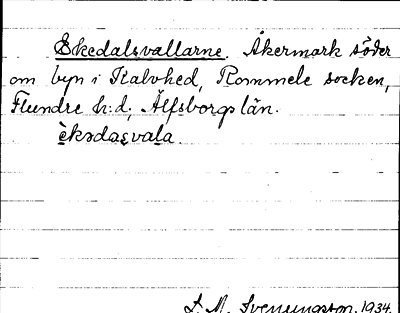 Ekedalsvallarne. Åkermark söder
om byn i Stalvhed, Rommele socken,
Flundre h:d, Älfsborgs län.
èkədas̨vala
S. M. Svenungsson. 1934.